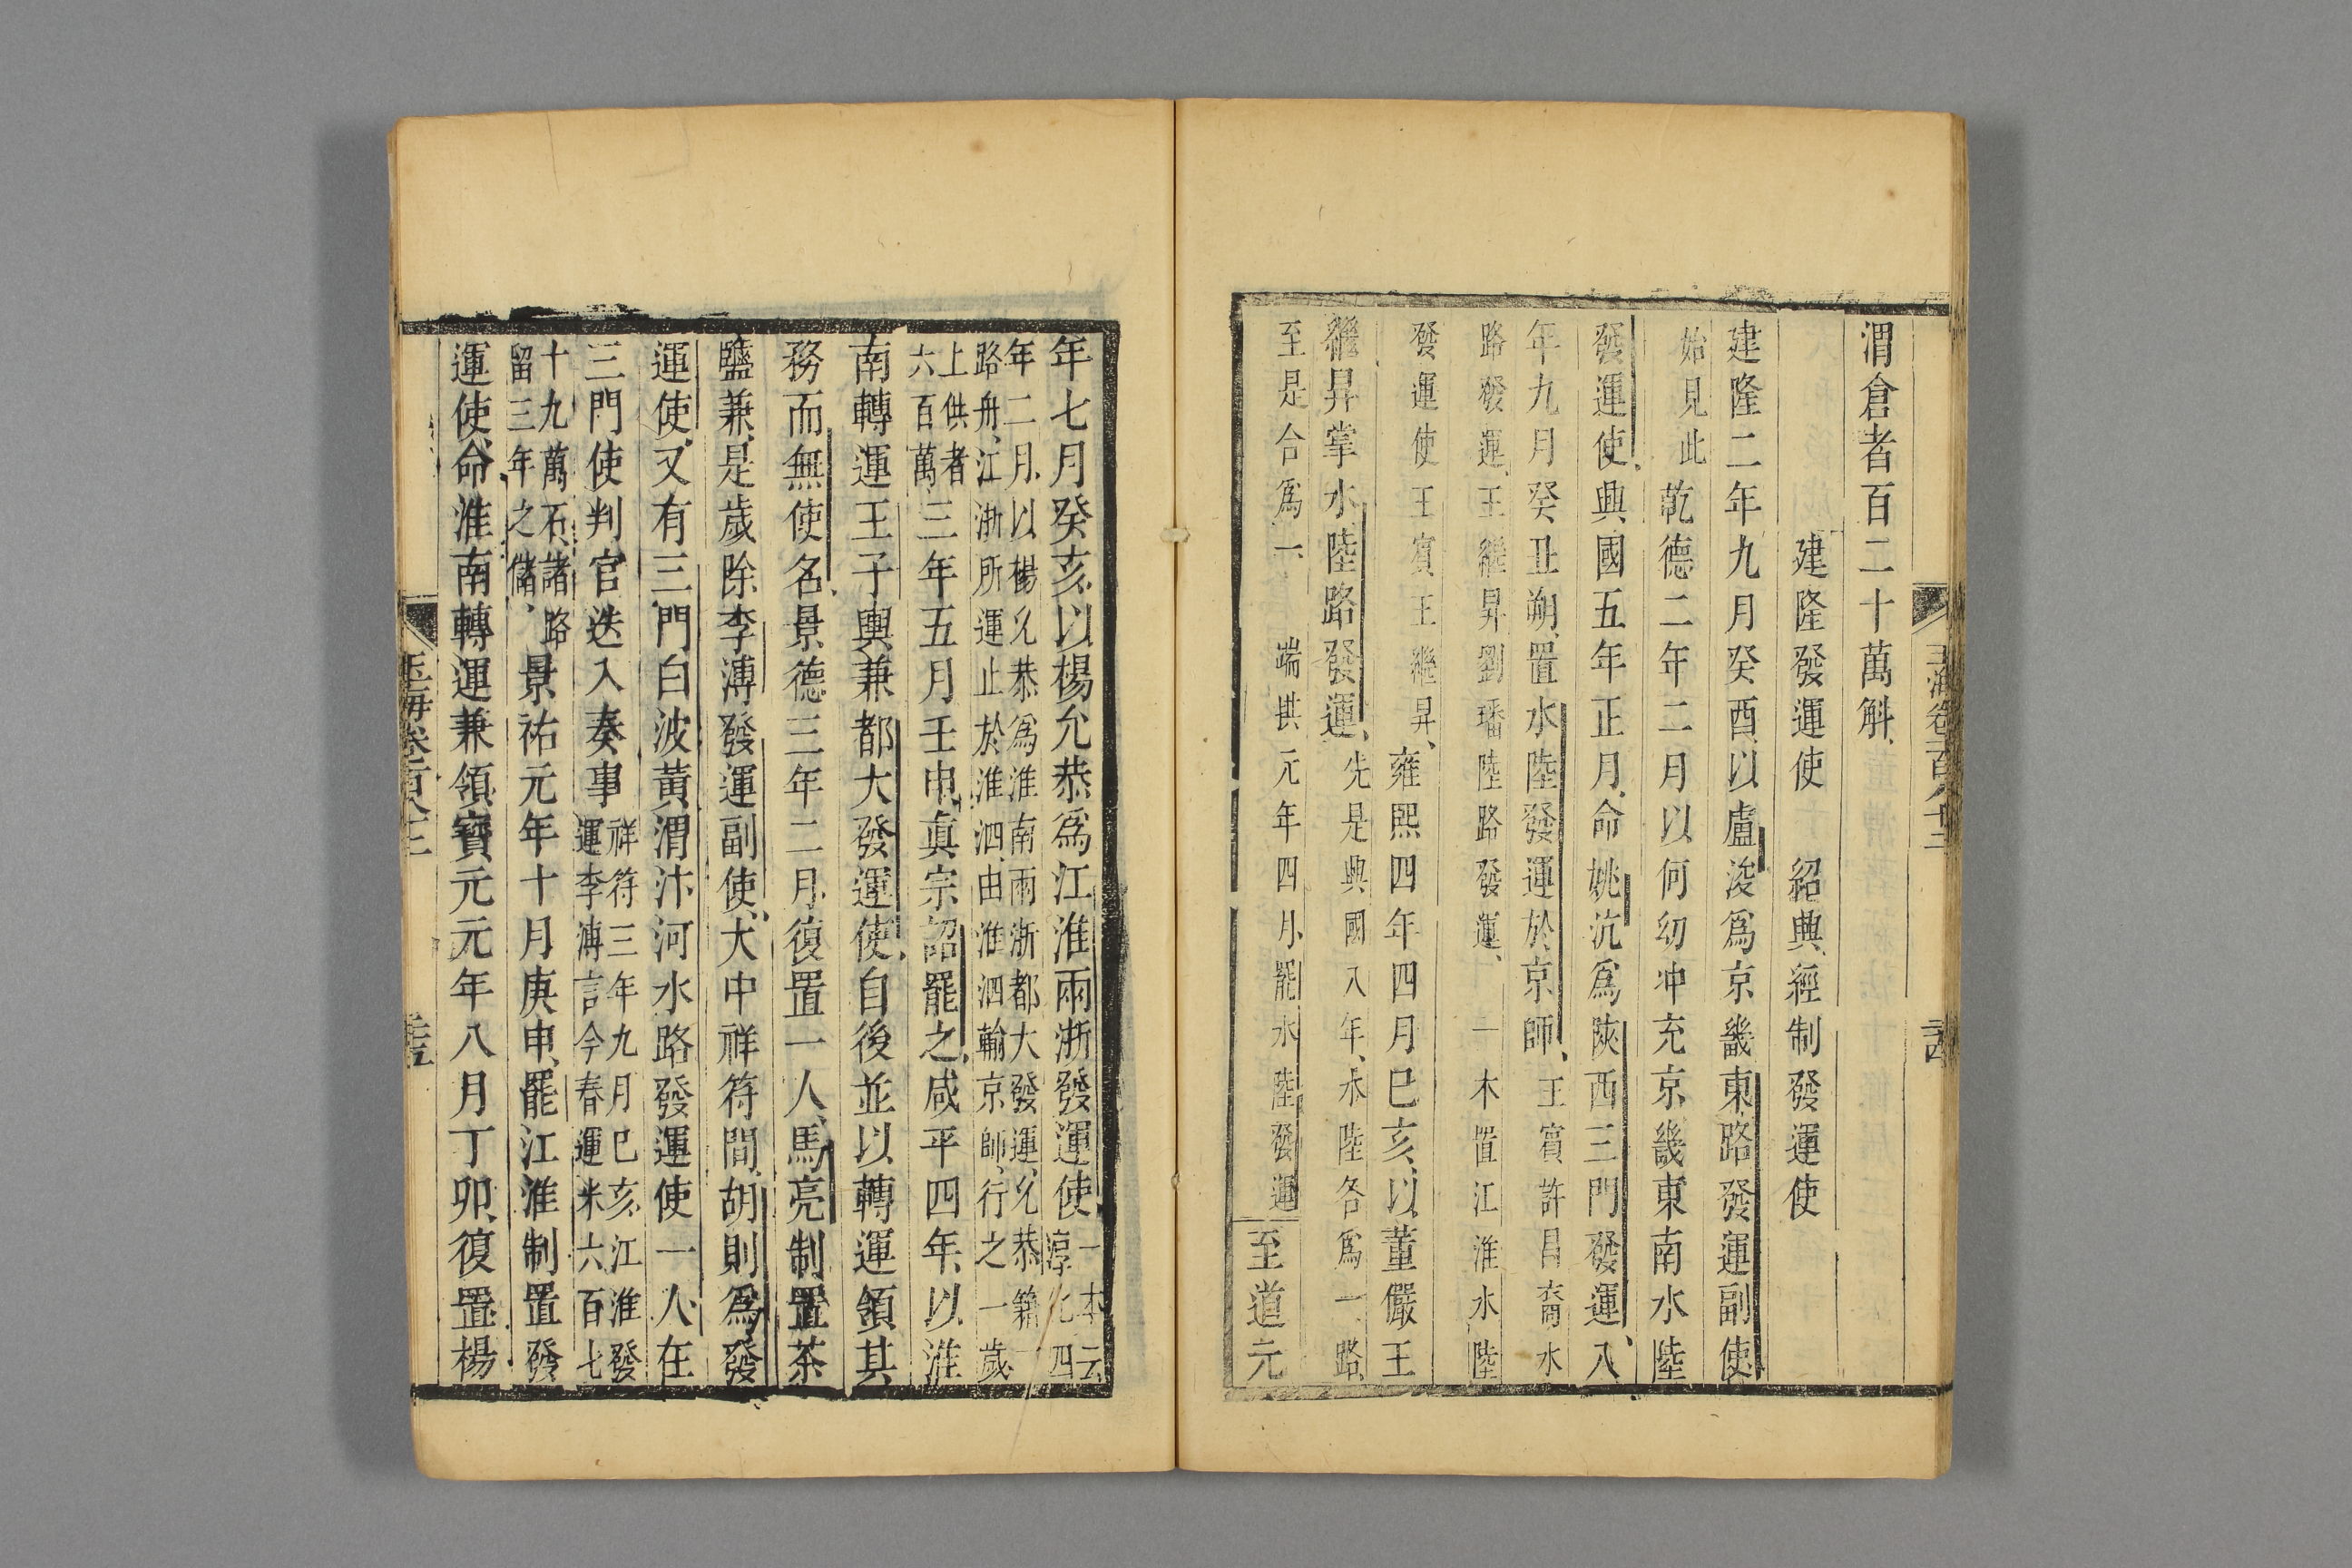 玉海卷百八十二
三十四
渭倉者百二十萬斛
建隆發運使　紹興經制發運使
建隆二年九月癸酉以盧浚爲京畿東路發運副使
始見此乾德二年二月以何幼冲充京畿東南水陸
發運使興國五年正月命姚沆爲陝西三門發運八
年九月癸丑朔置水陸發運於京師王賓許昌裔水
路發運王繼昇劉蟠陸路發運　一本置江淮水陸
發運使王賓王繼昇雍熙四年四月己亥以董儼王
繼昇掌水陸路發運先是興國八年水陸各爲一路
至是合爲一　端拱元年四月罷水陸發運至道元
年七月癸亥以楊允恭爲江淮兩浙發運使一本云
淳化四
年二月以楊允恭爲淮南兩浙都大發運允恭籍
路舟江浙所運止於淮泗由淮泗輸京師行之一歲
上供者
六百萬三年五月壬申眞宗詔罷之咸平四年以淮
南轉運王子輿兼都大發運使自後並以轉運領其
務而無使名景德三年二月復置一人馬亮制置茶
鹽兼是歲除李溥發運副使大中祥符間胡則爲發
運使又有三門白波黃渭汴河水路發運使一人在
三門使判官迭入奏事祥符三年九月己亥江淮發
運李溥言今春運米六百七
十九萬石諸路
留三年之儲景祐元年十月庚申罷江淮制置發
運使命淮南轉運兼領寶元元年八月丁卯復置楊
玉海卷百八十二
三十五